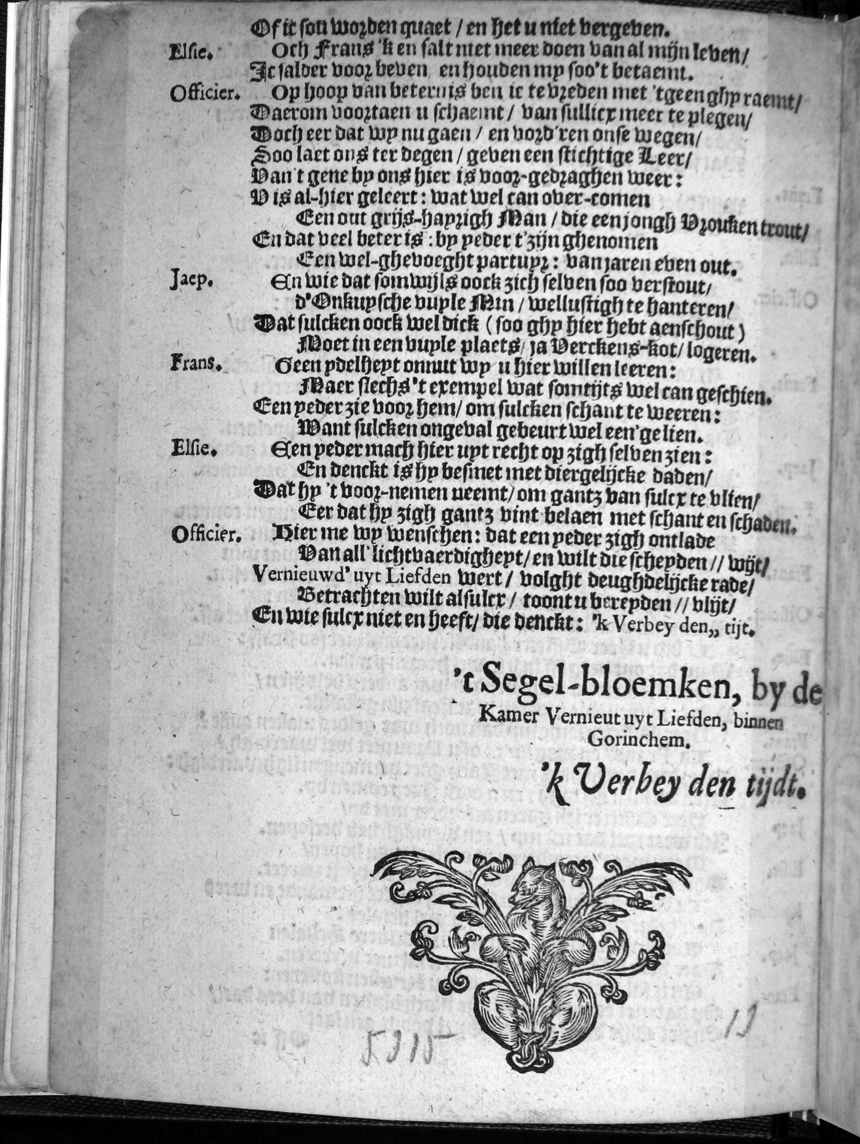 Of ic sou worden quaet / en het u niet vergeven.
Elsie. Och Frans 'k en salt niet meer doen van al mijn leven /
Ic salder voor beven en houden my soo't betaemt.
Officier. Op hoop van beternis ben ic te vreden met 'tgeen ghy raemt /
Daerom voortaen u schaemt / van sullicx meer te plegen /
Doch eer dat wy nu gaen / en vord'ren onse wegen /
Soo laet ons ter degen / geven een stichtige Leer /
Van't gene by ons hier is voor-gedraghen weer :
V is al-hier geleert : wat wel can over-comen
Een out grijs-hayrigh Man / die een jongh Vrouken trout /
En dat veel beter is : by yeder t'zijn ghenomen
Een wel-ghevoeght partuyr : van jaren even out.
Jaep. En wie dat somwijls oock zich selven soo verstout /
d'Onkuysche vuyle Min / wellustigh te hanteren /
Dat sulcken oock wel dick ( soo ghy hier hebt aenschout )
Moet in een vuyle plaets / ja Verckens-kot / logeren.
Frans. Geen ydelheyt onnut wy u hier willen leeren :
Maer slechs 't exempel wat somtijts wel can geschien.
Een yeder zie voor hem / om sulcken schant te weeren :
Want sulcken ongeval gebeurt wel een'ge lien.
Elsie. Een yeder mach hier uyt recht op zigh selven zien :
En denckt is hy besmet met diergelijcke daden /
Dat hy 't voor-nemen neemt / om gantz van sulcx te vlien /
Eer dat hy zigh gantz vint belaen met schant en schaden.
Officier. Hier me wy wenschen : dat een yeder zigh ontlade
Van all' lichtvaerdigheyt / en wilt die scheyden // wijt /
Vernieuwd' uyt Liefden wert / volght deughdelijcke rade /
Betrachten wilt alsulcx / toont u bereyden // vlijt /
En wie sulcx niet en heeft / die denckt : 'k Verbey den,, tijt.
't Segel-bloemken, by de
Kamer Vernieut uyt Liefden, binnen
Gorinchem.
'k Verbey den tijdt.
5315 19